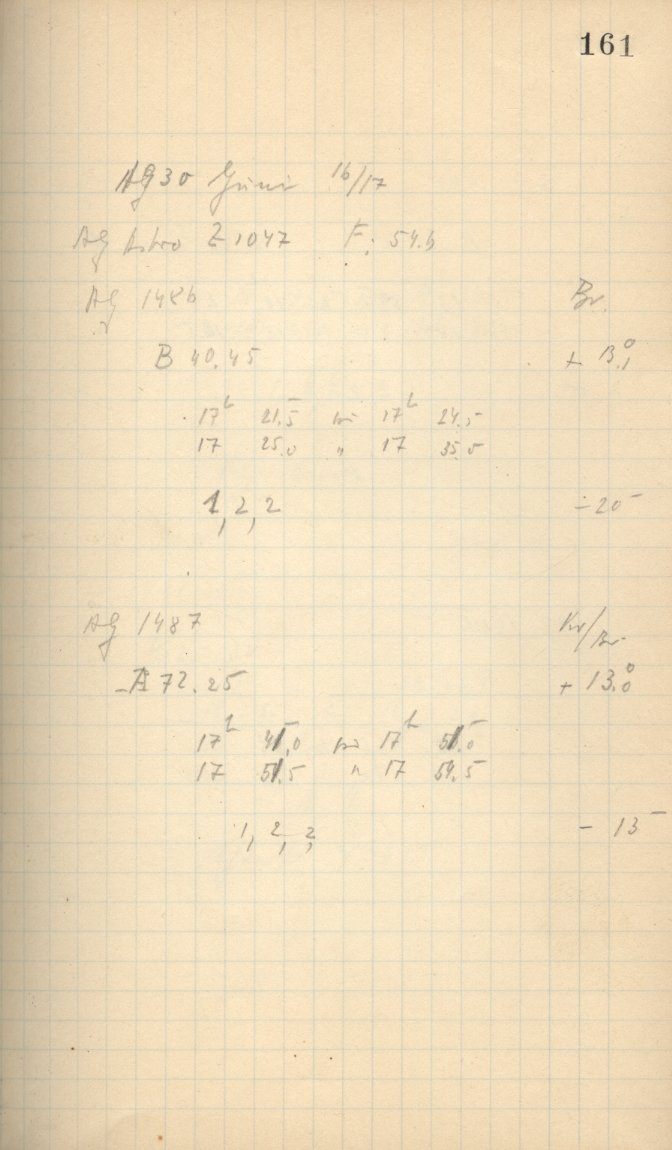 161
1930 Juni 16/17
AG Astro Z 1047 F: 54.6
AG 1486 Br.
B 40.45 + 13.°1
17h 21.5 bis 17h 24.5
17 25.0 " 17 35.0
1, 2, 2 - 20
AG 1487 Kr/Br.
A 72.25 + 13.°0
17h 41.0 bis 17h 51.0
17 51.5 " 17 54.5
1, 2, 2, - 15